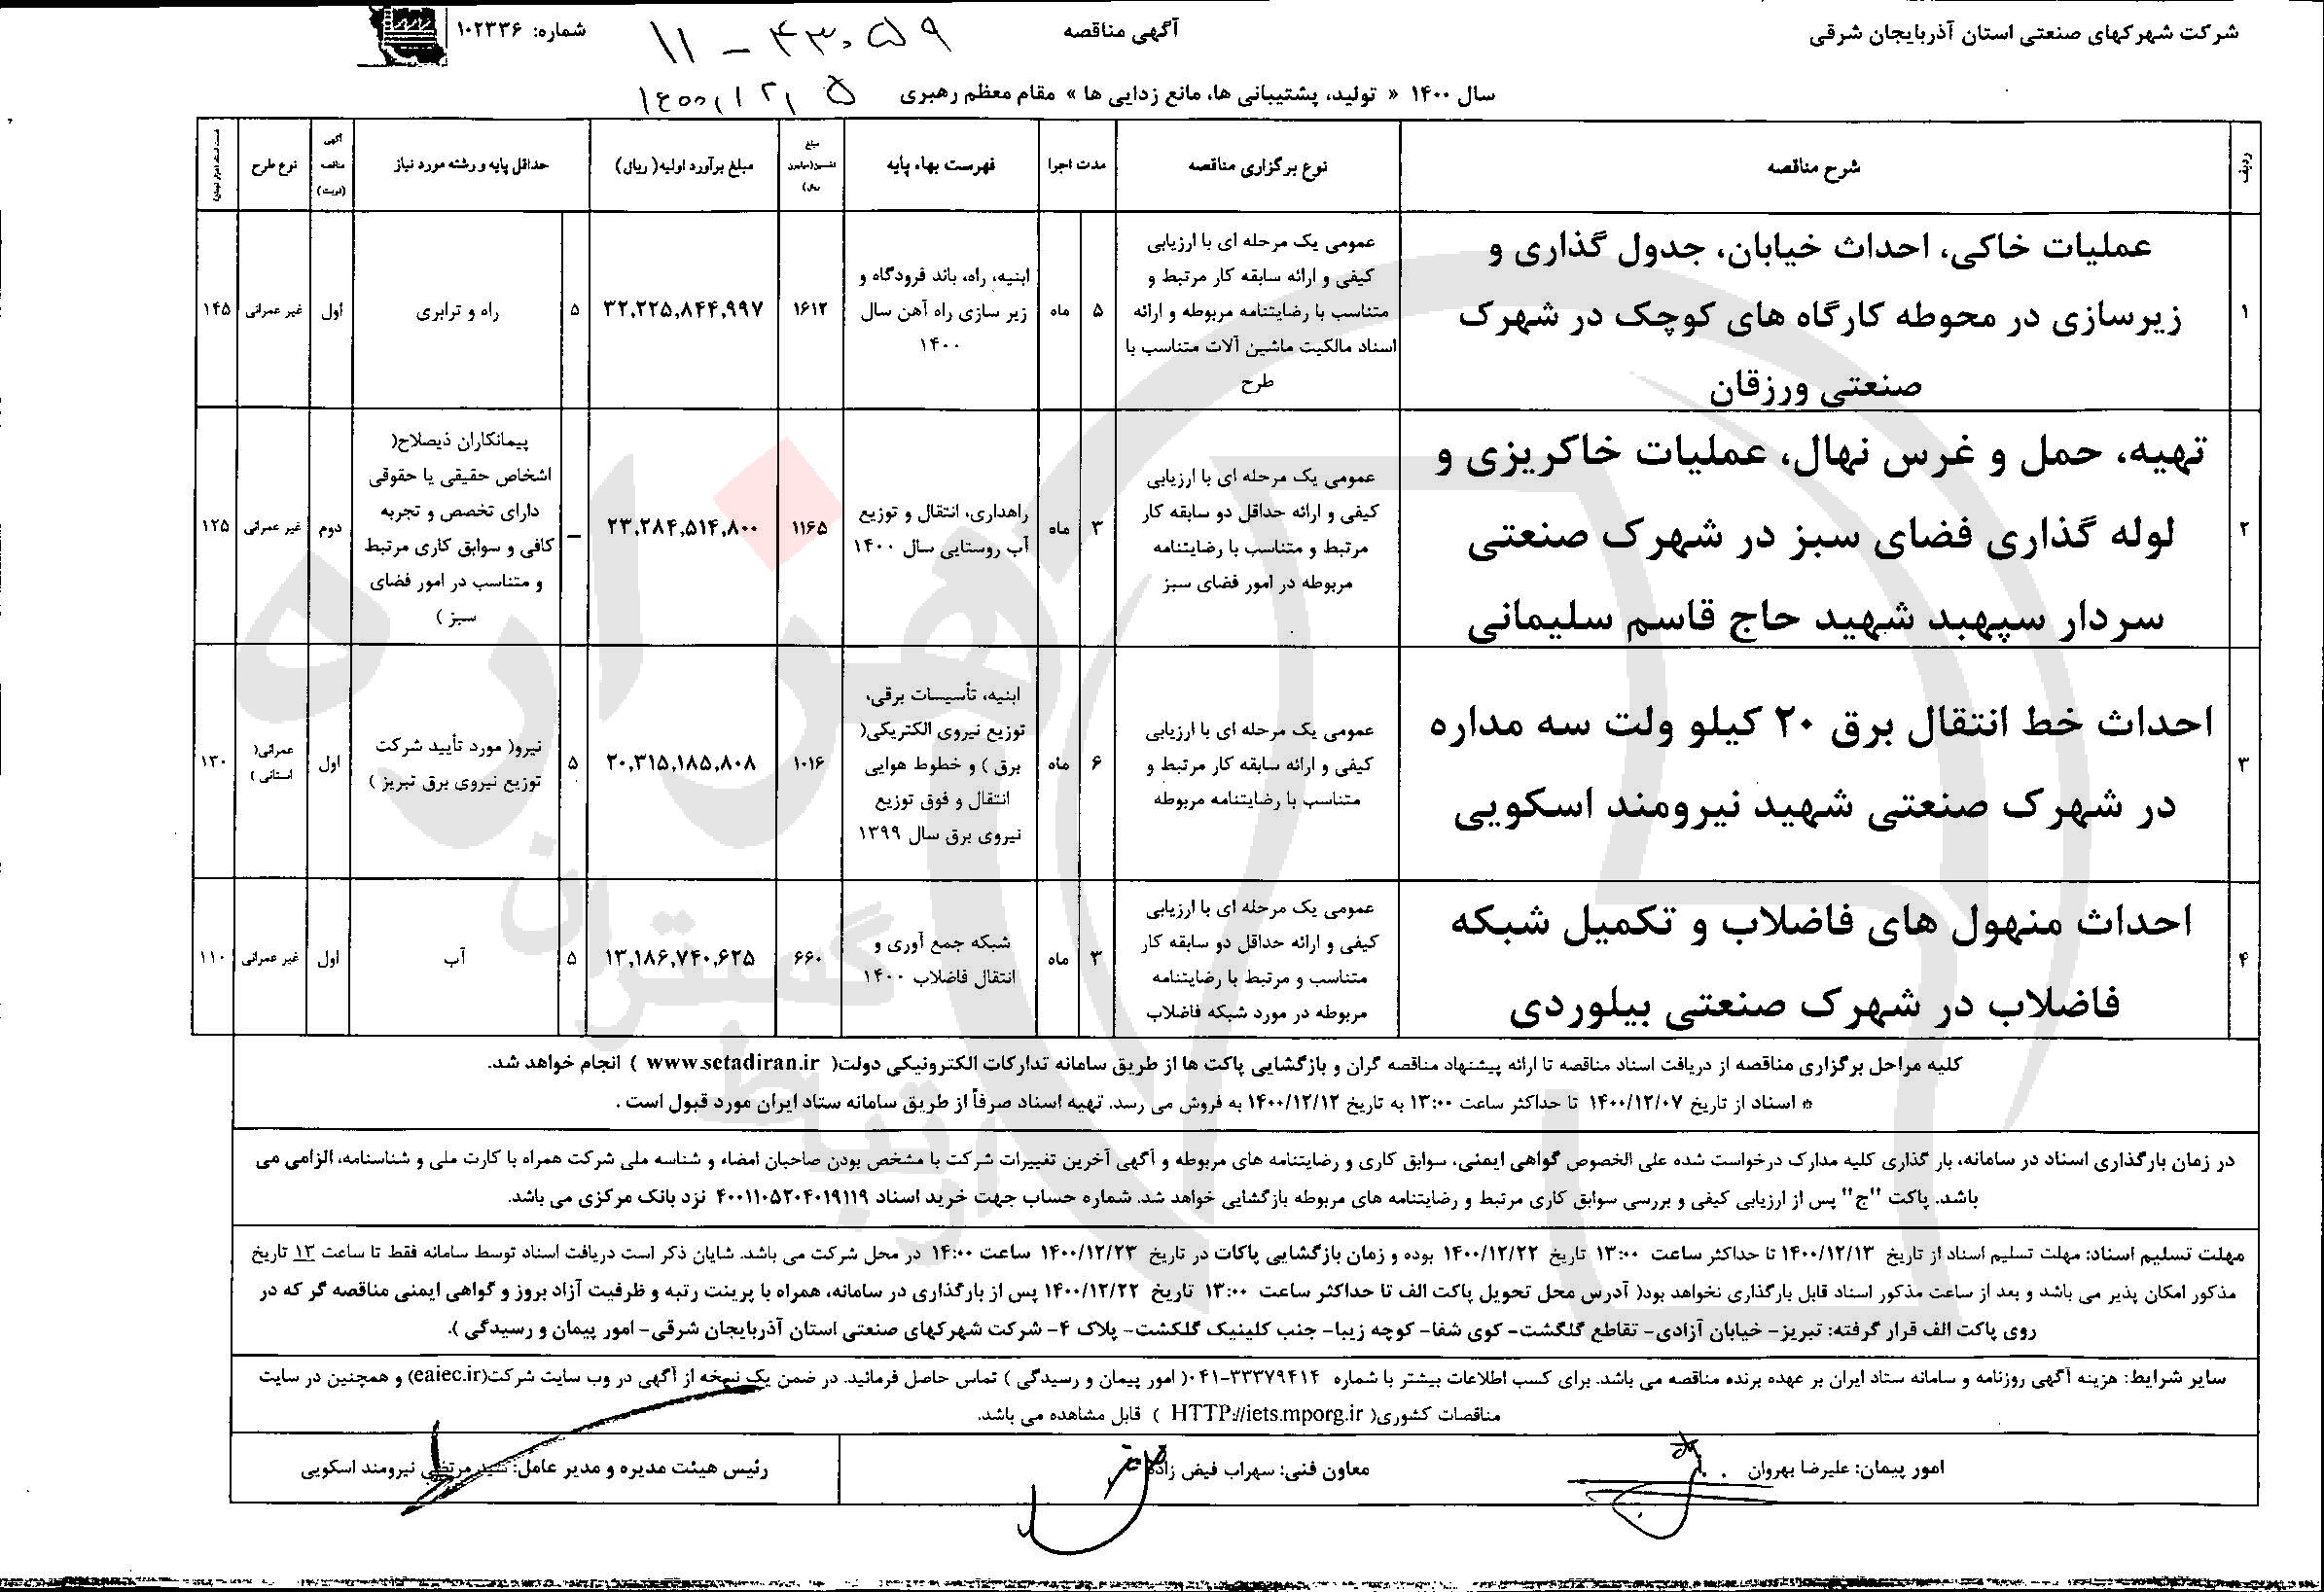 شرکت شهرکهای صنعتی استان آذربایجان شرقی
آگهی مناقصه
۱۱ – ۴۳۰۵۹
شماره: ۱۰۲۳۳۶
سال ۱۴۰۰ « تولید، پشتیبانی ها، مانع زدایی ها » مقام معظم رهبری
۱۴۰۰/۱۲/۵
ردیف
شرح مناقصه
نوع برگزاری مناقصه
مدت اجرا
فهرست بهاء پایه
مبلغ
تضمین(میلیون
ریال)
مبلغ برآورد اولیه( ریال)
حداقل پایه و رشته مورد نیاز
آگهی
مناقصه
(نوبت)
نوع طرح
۱
عملیات خاکی، احداث خیابان، جدول گذاری و
زیرسازی در محوطه کارگاه های کوچک در شهرک
صنعتی ورزقان
عمومی یک مرحله ای با ارزیابی
کیفی و ارائه سابقه کار مرتبط و
متناسب با رضایتنامه مربوطه و ارائه
اسناد مالکیت ماشین آلات متناسب با
طرح
۵
ماه
ابنیه، راه، باند فرودگاه و
زیر سازی راه آهن سال
۱۴۰۰
۱۶۱۲
۳۲,۲۲۵,۸۴۴,۹۹۷
۵
راه و ترابری
اول
غیر عمرانی
۱۴۵
۲
تهیه، حمل و غرس نهال، عملیات خاکریزی و
لوله گذاری فضای سبز در شهرک صنعتی
سردار سپهبد شهید حاج قاسم سلیمانی
عمومی یک مرحله ای با ارزیابی
کیفی و ارائه حداقل دو سابقه کار
مرتبط و متناسب با رضایتنامه
مربوطه در امور فضای سبز
۳
ماه
راهداری، انتقال و توزیع
آب روستایی سال ۱۴۰۰
۱۱۶۵
۲۳,۲۸۴,۵۱۴,۸۰۰
–
پیمانکاران ذیصلاح(
اشخاص حقیقی یا حقوقی
دارای تخصص و تجربه
کافی و سوابق کاری مرتبط
و متناسب در امور فضای
سبز )
دوم
غیر عمرانی
۱۲۵
۳
احداث خط انتقال برق ۲۰ کیلو ولت سه مداره
در شهرک صنعتی شهید نیرومند اسکویی
عمومی یک مرحله ای با ارزیابی
کیفی و ارائه سابقه کار مرتبط و
متناسب با رضایتنامه مربوطه
۶
ماه
ابنیه، تأسیسات برقی،
توزیع نیروی الکتریکی(
برق ) و خطوط هوایی
انتقال و فوق توزیع
نیروی برق سال ۱۳۹۹
۱۰۱۶
۲۰,۳۱۵,۱۸۵,۸۰۸
۵
نیرو( مورد تأیید شرکت
توزیع نیروی برق تبریز )
اول
عمرانی(
استانی )
۱۳۰
۴
احداث منهول های فاضلاب و تکمیل شبکه
فاضلاب در شهرک صنعتی بیلوردی
عمومی یک مرحله ای با ارزیابی
کیفی و ارائه حداقل دو سابقه کار
متناسب و مرتبط با رضایتنامه
مربوطه در مورد شبکه فاضلاب
۳
ماه
شبکه جمع آوری و
انتقال فاضلاب ۱۴۰۰
۶۶۰
۱۳,۱۸۶,۷۴۰,۶۲۵
۵
آب
اول
غیر عمرانی
۱۱۰
کلیه مراحل برگزاری مناقصه از دریافت اسناد مناقصه تا ارائه پیشنهاد مناقصه گران و بازگشایی پاکت ها از طریق سامانه تدارکات الکترونیکی دولت( www.setadiran.ir ) انجام خواهد شد.
* اسناد از تاریخ ۱۴۰۰/۱۲/۰۷ تا حداکثر ساعت ۱۳:۰۰ به تاریخ ۱۴۰۰/۱۲/۱۲ به فروش می رسد. تهیه اسناد صرفاً از طریق سامانه ستاد ایران مورد قبول است .
در زمان بارگذاری اسناد در سامانه، بار گذاری کلیه مدارک درخواست شده علی الخصوص گواهی ایمنی، سوابق کاری و رضایتنامه های مربوطه و آگهی آخرین تغییرات شرکت با مشخص بودن صاحبان امضاء و شناسه ملی شرکت همراه با کارت ملی و شناسنامه، الزامی می
باشد. پاکت "ج" پس از ارزیابی کیفی و بررسی سوابق کاری مرتبط و رضایتنامه های مربوطه بازگشایی خواهد شد. شماره حساب جهت خرید اسناد ۴۰۰۱۱۰۵۲۰۴۰۱۹۱۱۹ نزد بانک مرکزی می باشد.
مهلت تسلیم اسناد: مهلت تسلیم اسناد از تاریخ ۱۴۰۰/۱۲/۱۳ تا حداکثر ساعت ۱۳:۰۰ تاریخ ۱۴۰۰/۱۲/۲۲ بوده و زمان بازگشایی پاکات در تاریخ ۱۴۰۰/۱۲/۲۳ ساعت ۱۴:۰۰ در محل شرکت می باشد. شایان ذکر است دریافت اسناد توسط سامانه فقط تا ساعت ۱۳ تاریخ
مذکور امکان پذیر می باشد و بعد از ساعت مذکور اسناد قابل بارگذاری نخواهد بود( آدرس محل تحویل پاکت الف تا حداکثر ساعت ۱۳:۰۰ تاریخ ۱۴۰۰/۱۲/۲۲ پس از بارگذاری در سامانه، همراه با پرینت رتبه و ظرفیت آزاد بروز و گواهی ایمنی مناقصه گر که در
روی پاکت الف قرار گرفته: تبریز- خیابان آزادی- تقاطع گلگشت- کوی شفا- کوچه زیبا- جنب کلینیک گلگشت- پلاک ۴- شرکت شهرکهای صنعتی استان آذربایجان شرقی- امور پیمان و رسیدگی ).
سایر شرایط: هزینه آگهی روزنامه و سامانه ستاد ایران بر عهده برنده مناقصه می باشد. برای کسب اطلاعات بیشتر با شماره ۰۴۱-۳۳۳۷۹۴۱۴( امور پیمان و رسیدگی ) تماس حاصل فرمائید. در ضمن یک نسخه از آگهی در وب سایت شرکت(eaiec.ir) و همچنین در سایت
مناقصات کشوری( HTTP://iets.mporg.ir ) قابل مشاهده می باشد.
امور پیمان: علیرضا بهروان
معاون فنی: سهراب فیض زاده
رئیس هیئت مدیره و مدیر عامل: سید مرتضی نیرومند اسکویی
هزاره
گسترش
ارتباط